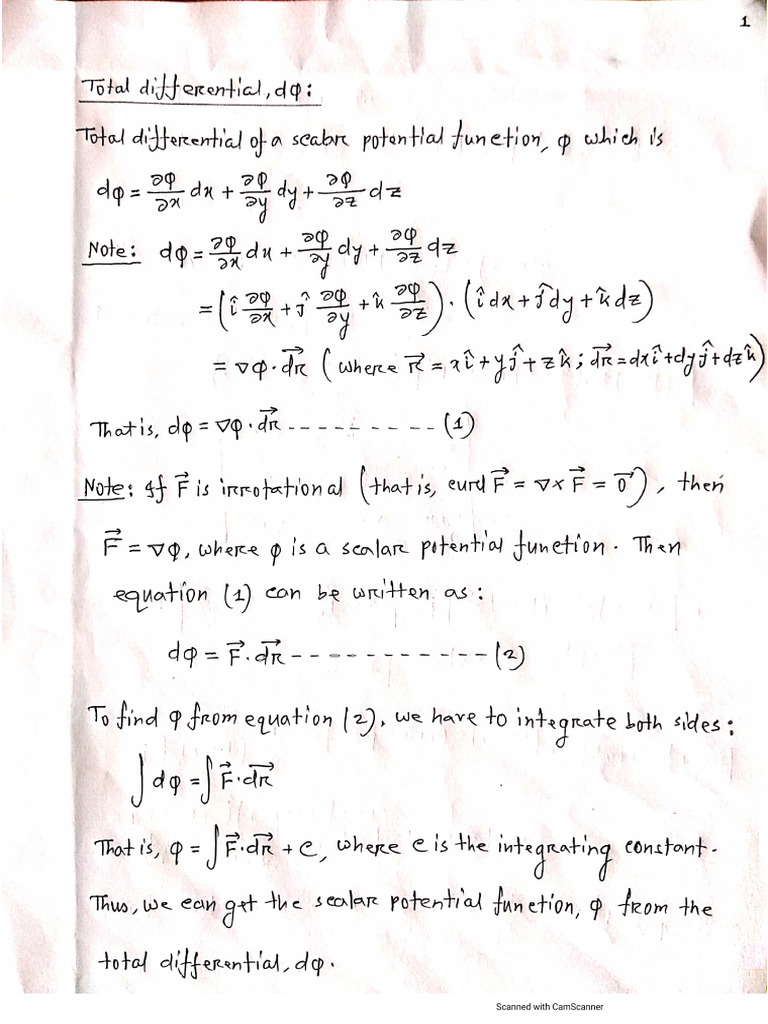 1
Total differential, dφ:
Total differential of a scalar potential function, φ which is
dφ = ∂φ/∂x dx + ∂φ/∂y dy + ∂φ/∂z dz
Note: dφ = ∂φ/∂x dx + ∂φ/∂y dy + ∂φ/∂z dz
= (î ∂φ/∂x + ĵ ∂φ/∂y + k̂ ∂φ/∂z) · (î dx + ĵ dy + k̂ dz)
= ∇φ · d⃗r (where r⃗ = xî + yĵ + zk̂ ; d⃗r = dxî + dyĵ + dzk̂)
That is, dφ = ∇φ · d⃗r --------- (1)
Note: If F⃗ is irrotational (that is, curl F⃗ = ∇ × F⃗ = 0⃗), then
F⃗ = ∇φ, where φ is a scalar potential function. Then
equation (1) can be written as:
dφ = F⃗ · d⃗r ----------- (2)
To find φ from equation (2), we have to integrate both sides:
∫dφ = ∫F⃗ · d⃗r
That is, φ = ∫F⃗ · d⃗r + c, where c is the integrating constant.
Thus, we can get the scalar potential function, φ from the
total differential, dφ.
Scanned with CamScanner